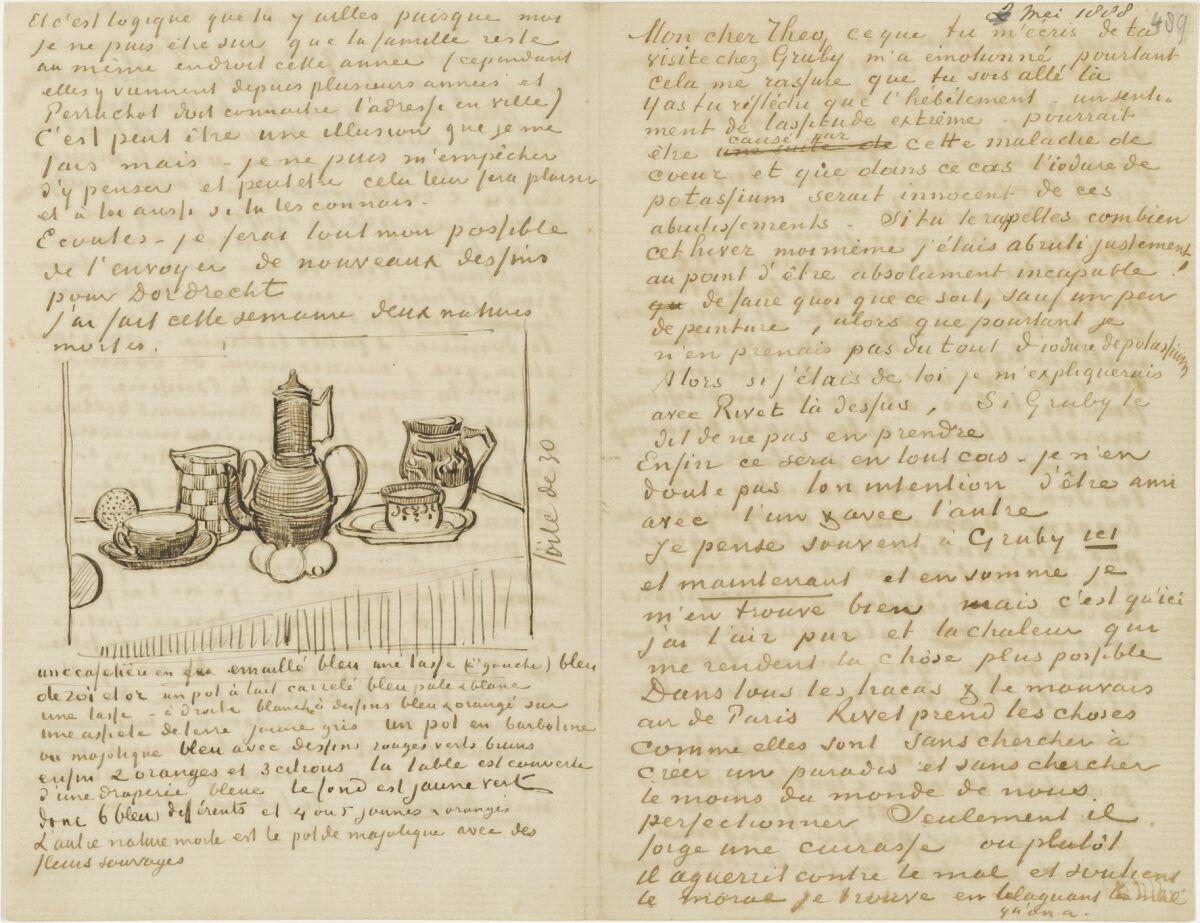 Et c'est logique que tu y ailles puisque moi
je ne puis être sur que la famille reste
au même endroit cette année (cependant
elles y viennent depuis plusieurs années et
Perruchot doit connaitre l'adresse en ville)
C'est peut être une illusion que je me
fais mais – je ne puis m'empêcher
d'y penser et peutetre cela leur fera plaisir
et à toi aussi si tu les connais.
Ecoutes – je ferai tout mon possible
de t'envoyer de nouveaux dessins
pour Dordrecht
J'ai fait cette semaine deux natures
mortes.
toile de 30
une cafetière en fer emaillé bleu une tasse (à gauche) bleu
de roi et or un pot à lait carrelé bleu pale & blanc
une tasse – à droite blanche à dessins bleu & orangé sur
une assiete de terre jaune gris un pot en barbotine
ou majolique bleu avec dessins rouges verts bruns
enfin 2 oranges et 3 citrons la table est couverte
d'une draperie bleue le fond est jaune vert
donc 6 bleus différents et 4 ou 5 jaunes & oranges
L'autre nature morte est le pot de majolique avec des
fleurs sauvages
Mei 1888
489
Mon cher Theo, ce que tu m'écris de ta
visite chez Gruby m'a émotionné pourtant
cela me rassure que tu sois allé là
Y as tu réfléchi que l'hébétement – un senti-
ment de lassitude extrême – pourrait
être une suite de causé par cette maladie de
coeur et que dans ce cas l'iodure de
potassium serait innocent de ces
abrutissements – Si tu te rapelles combien
cet hiver moi même j'étais abruti justement
au point d'être absolument incapable
de faire quoi que ce soit, sauf un peu
de peinture, alors que pourtant je
n'en prenais pas du tout d'iodure de potassium
Alors si j'étais de toi je m'expliquerais
avec Rivet là dessus, Si Gruby te
dit de ne pas en prendre
Enfin ce sera en tout cas – je n'en
doute pas ton intention d'être ami
avec l'un & avec l'autre
Je pense souvent à Gruby ici
et maintenant et en somme je
m'en trouve bien mais c'est qu'ici
j'ai l'air pur et la chaleur qui
me rendent la chose plus possible
Dans tous les tracas & le mauvais
air de Paris Rivet prend les choses
comme elles sont sans chercher à
créer un paradis et sans chercher
le moins du monde de nous
perfectionner Seulement il
forge une cuirasse ou plutôt
il aguerrit contre le mal et soutient
le moral je trouve en blaguant le mal
qu'on a.